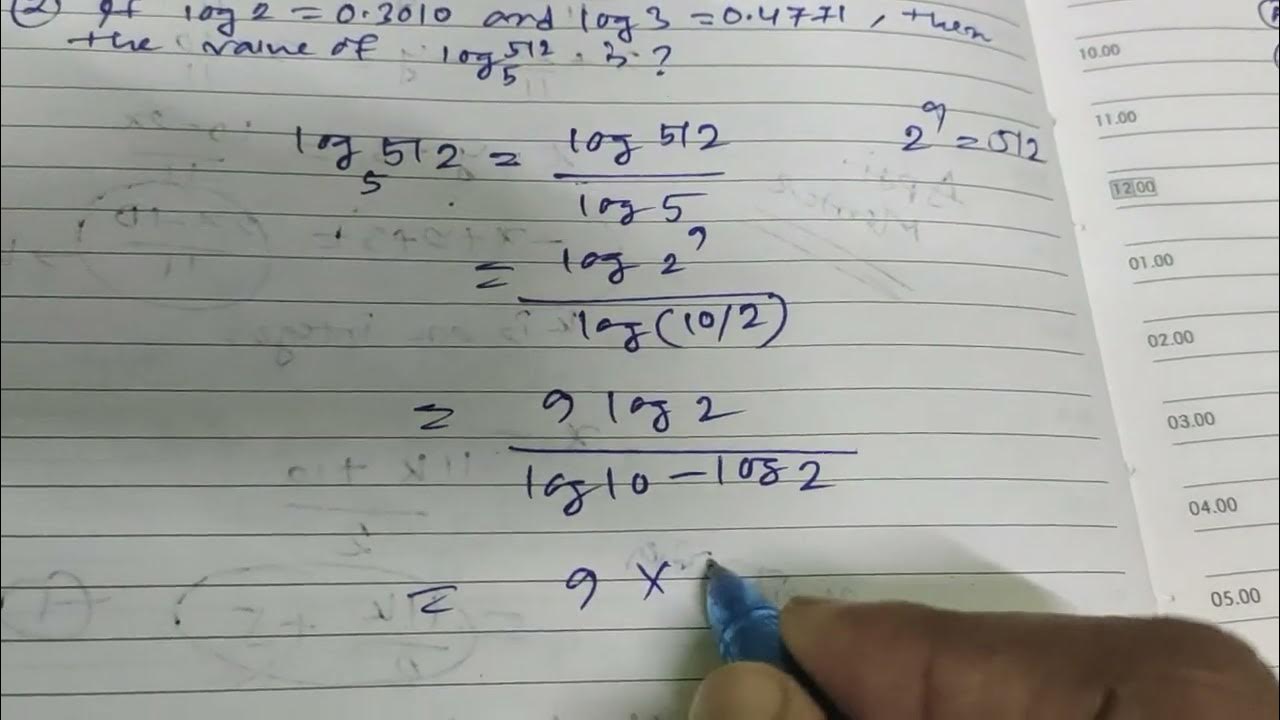 ② If log 2 = 0.3010 and log 3 = 0.4771, then
the value of log₅ 512 is ?
log₅ 512 = log 512 / log 5
2⁹ = 512
= log 2⁹ / log (10/2)
= 9 log 2 / log 10 - log 2
= 9 ×
10.00
11.00
12.00
01.00
02.00
03.00
04.00
05.00